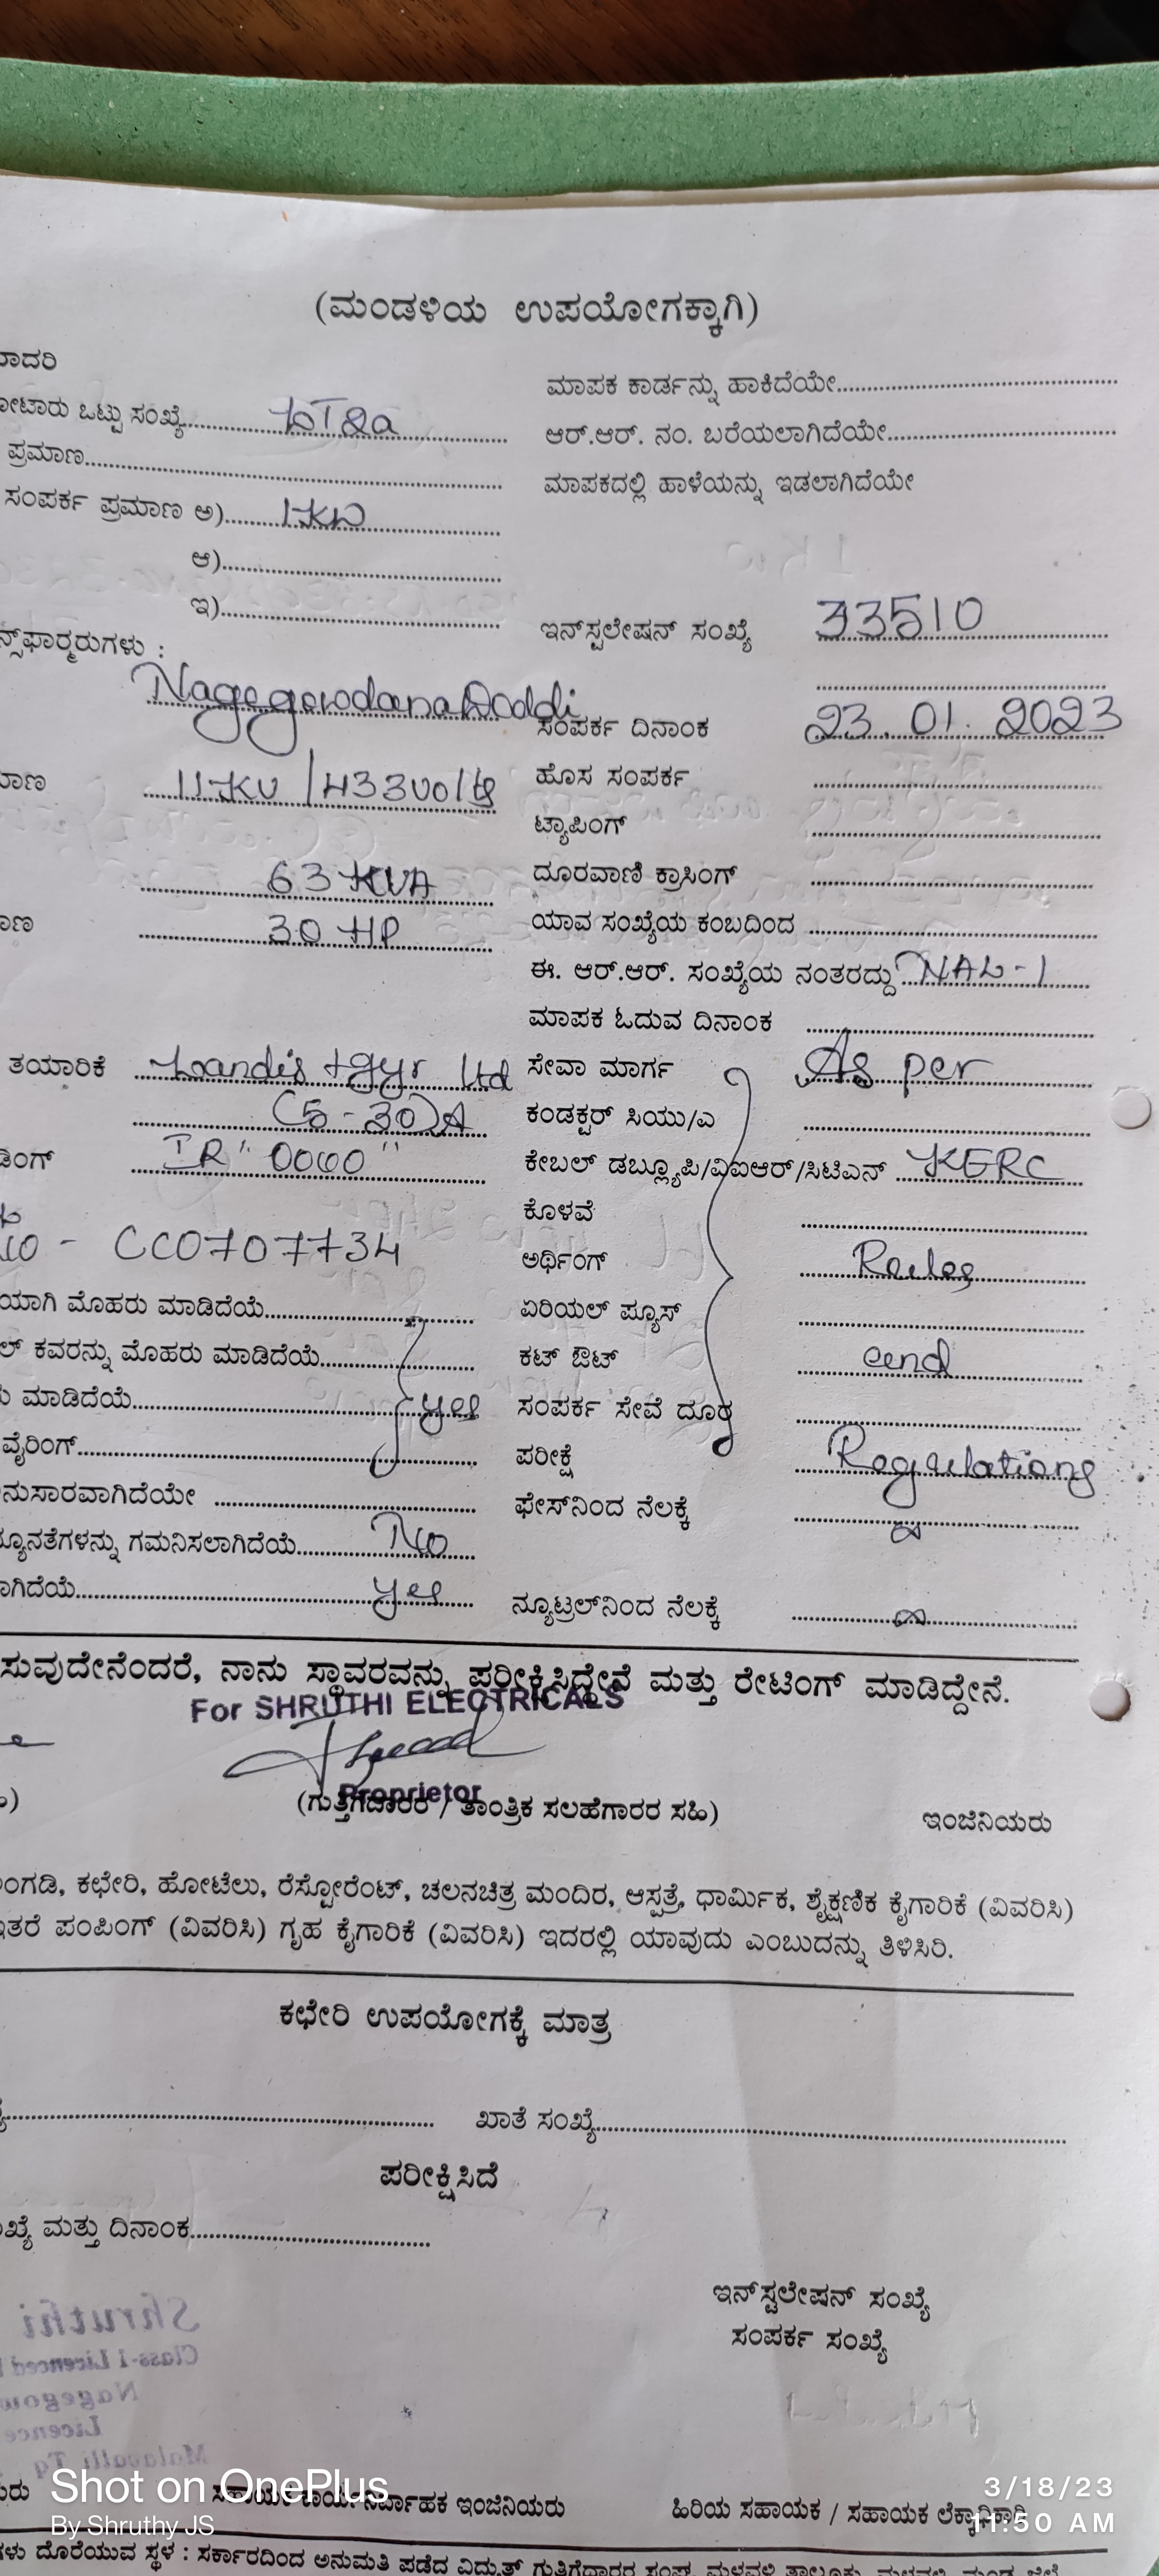 (ಮಂಡಳಿಯ ಉಪಯೋಗಕ್ಕಾಗಿ)
ಮಾಪಕ ಕಾರ್ಡನ್ನು ಹಾಕಿದೆಯೇ
ಒಟ್ಟು ಸಂಖ್ಯೆ
ಆರ್.ಆರ್. ನಂ. ಬರೆಯಲಾಗಿದೆಯೇ
ಪ್ರಮಾಣ
ಮಾಪಕದಲ್ಲಿ ಹಾಳೆಯನ್ನು ಇಡಲಾಗಿದೆಯೇ
ಸಂಪರ್ಕ ಪ್ರಮಾಣ ಅ) 1KW
ಆ)
ಇ)
ಇನ್‌ಸ್ಟಲೇಷನ್ ಸಂಖ್ಯೆ 33510
NagegowdanaDoddi
ಸಂಪರ್ಕ ದಿನಾಂಕ 23.01.2023
11KV /433Volts ಹೊಸ ಸಂಪರ್ಕ
ಟ್ಯಾಪಿಂಗ್
63 KVA ದೂರವಾಣಿ ಕ್ರಾಸಿಂಗ್
30 HP ಯಾವ ಸಂಖ್ಯೆಯ ಕಂಬದಿಂದ
ಈ. ಆರ್.ಆರ್. ಸಂಖ್ಯೆಯ ನಂತರದ್ದು NAL-1
ಮಾಪಕ ಓದುವ ದಿನಾಂಕ
ತಯಾರಿಕೆ Landis +gyr Ltd ಸೇವಾ ಮಾರ್ಗ As per
(5-30)A ಕಂಡಕ್ಟರ್ ಸಿಯು/ಎ
IR "0000" ಕೇಬಲ್ ಡಬ್ಲ್ಯೂಪಿ/ವಿಐಆರ್/ಸಿಟಿಎಸ್ KERC
ಕೊಳವೆ
CC0707734 ಅರ್ಥಿಂಗ್ Rules
ಮೊಹರು ಮಾಡಿದೆಯೆ ಏರಿಯಲ್ ಪ್ಯೂಸ್
ಕವರನ್ನು ಮೊಹರು ಮಾಡಿದೆಯೆ ಕಟ್ ಔಟ್ and
ಮಾಡಿದೆಯೆ yes ಸಂಪರ್ಕ ಸೇವೆ ದೂರ
ವೈರಿಂಗ್ ಪರೀಕ್ಷೆ Regulations
ಫೇಸ್‌ನಿಂದ ನೆಲಕ್ಕೆ ∞
ಗಮನಿಸಲಾಗಿದೆಯೆ No
yes ನ್ಯೂಟ್ರಲ್‌ನಿಂದ ನೆಲಕ್ಕೆ ∞
ನಾನು ಸ್ಥಾವರವನ್ನು ಪರೀಕ್ಷಿಸಿದ್ದೇನೆ ಮತ್ತು ರೇಟಿಂಗ್ ಮಾಡಿದ್ದೇನೆ.
For SHRUTHI ELECTRICALS
Proprietor
(ಗುತ್ತಿಗೆದಾರರ / ತಾಂತ್ರಿಕ ಸಲಹೆಗಾರರ ಸಹಿ) ಇಂಜಿನಿಯರು
ಕಛೇರಿ, ಹೋಟೆಲು, ರೆಸ್ಟೋರೆಂಟ್, ಚಲನಚಿತ್ರ ಮಂದಿರ, ಆಸ್ಪತ್ರೆ, ಧಾರ್ಮಿಕ, ಶೈಕ್ಷಣಿಕ ಕೈಗಾರಿಕೆ (ವಿವರಿಸಿ)
ಇತರೆ ಪಂಪಿಂಗ್ (ವಿವರಿಸಿ) ಗೃಹ ಕೈಗಾರಿಕೆ (ವಿವರಿಸಿ) ಇದರಲ್ಲಿ ಯಾವುದು ಎಂಬುದನ್ನು ತಿಳಿಸಿರಿ.
ಕಛೇರಿ ಉಪಯೋಗಕ್ಕೆ ಮಾತ್ರ
ಖಾತೆ ಸಂಖ್ಯೆ
ಪರೀಕ್ಷಿಸಿದೆ
ಮತ್ತು ದಿನಾಂಕ
ಇನ್‌ಸ್ಟಲೇಷನ್ ಸಂಖ್ಯೆ
ಸಂಪರ್ಕ ಸಂಖ್ಯೆ
Shot on OnePlus
By Shruthy JS
ಇಂಜಿನಿಯರು
ಹಿರಿಯ ಸಹಾಯಕ / ಸಹಾಯಕ ಲೆಕ್ಕಾಧಿಕಾರಿ
3/18/23
11:50 AM
ದೊರೆಯುವ ಸ್ಥಳ : ಸರ್ಕಾರದಿಂದ ಅನುಮತಿ ಪಡೆದ ವಿದ್ಯುತ್ ಗುತ್ತಿಗೆದಾರರ ಸಂಘ